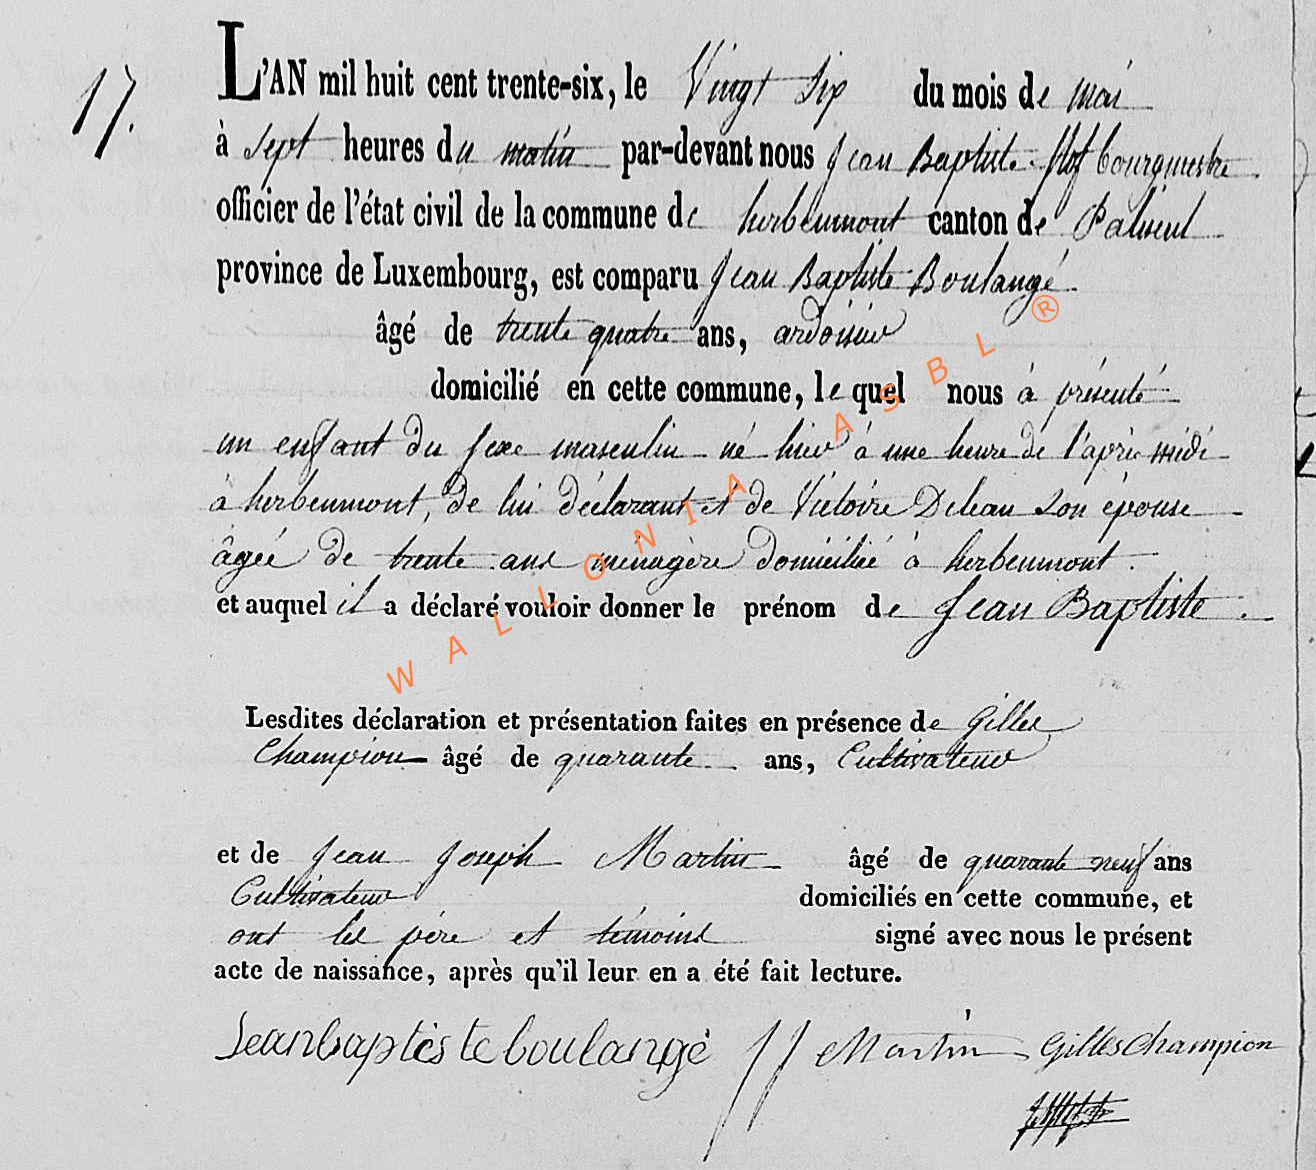 17.
L'AN mil huit cent trente-six, le Vingt Six du mois de mai
à sept heures du matin par-devant nous Jean Baptiste bourgmestre
officier de l'état civil de la commune de herbeumont canton de Paliseul
province de Luxembourg, est comparu Jean Baptiste Boulangé
âgé de trente quatre ans, ardoisier
domicilié en cette commune, lequel nous à présenté
un enfant du sexe masculin né hier à une heure de l'après midi
à herbeumont, de lui déclarant et de Victoire Dehan son épouse
âgée de trente ans ménagère domiciliée à herbeumont.
et auquel il a déclaré vouloir donner le prénom de Jean Baptiste.
Lesdites déclaration et présentation faites en présence de Gilles
Champion âgé de quarante ans, Cultivateur
et de Jean Joseph Martin âgé de quarante neuf ans
Cultivateur domiciliés en cette commune, et
ont les père et témoins signé avec nous le présent
acte de naissance, après qu'il leur en a été fait lecture.
Jeanbaptiste boulangé JJ Martin Gilles Champion
WALLONIA ASBL ®